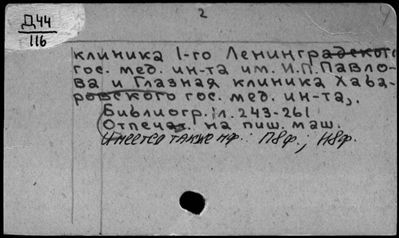 2
Д44
116
клиника 1-го Ленинградского
гос. мед. ин-та им. И.П.Павло-
ва и Глазная клиника Хаба-
ровского гос. мед. ин-та,.
Библиогр.: л. 243-261
Отпечат. на пиш. маш.
Имеется также мф.: П8ф.; Н8ф.